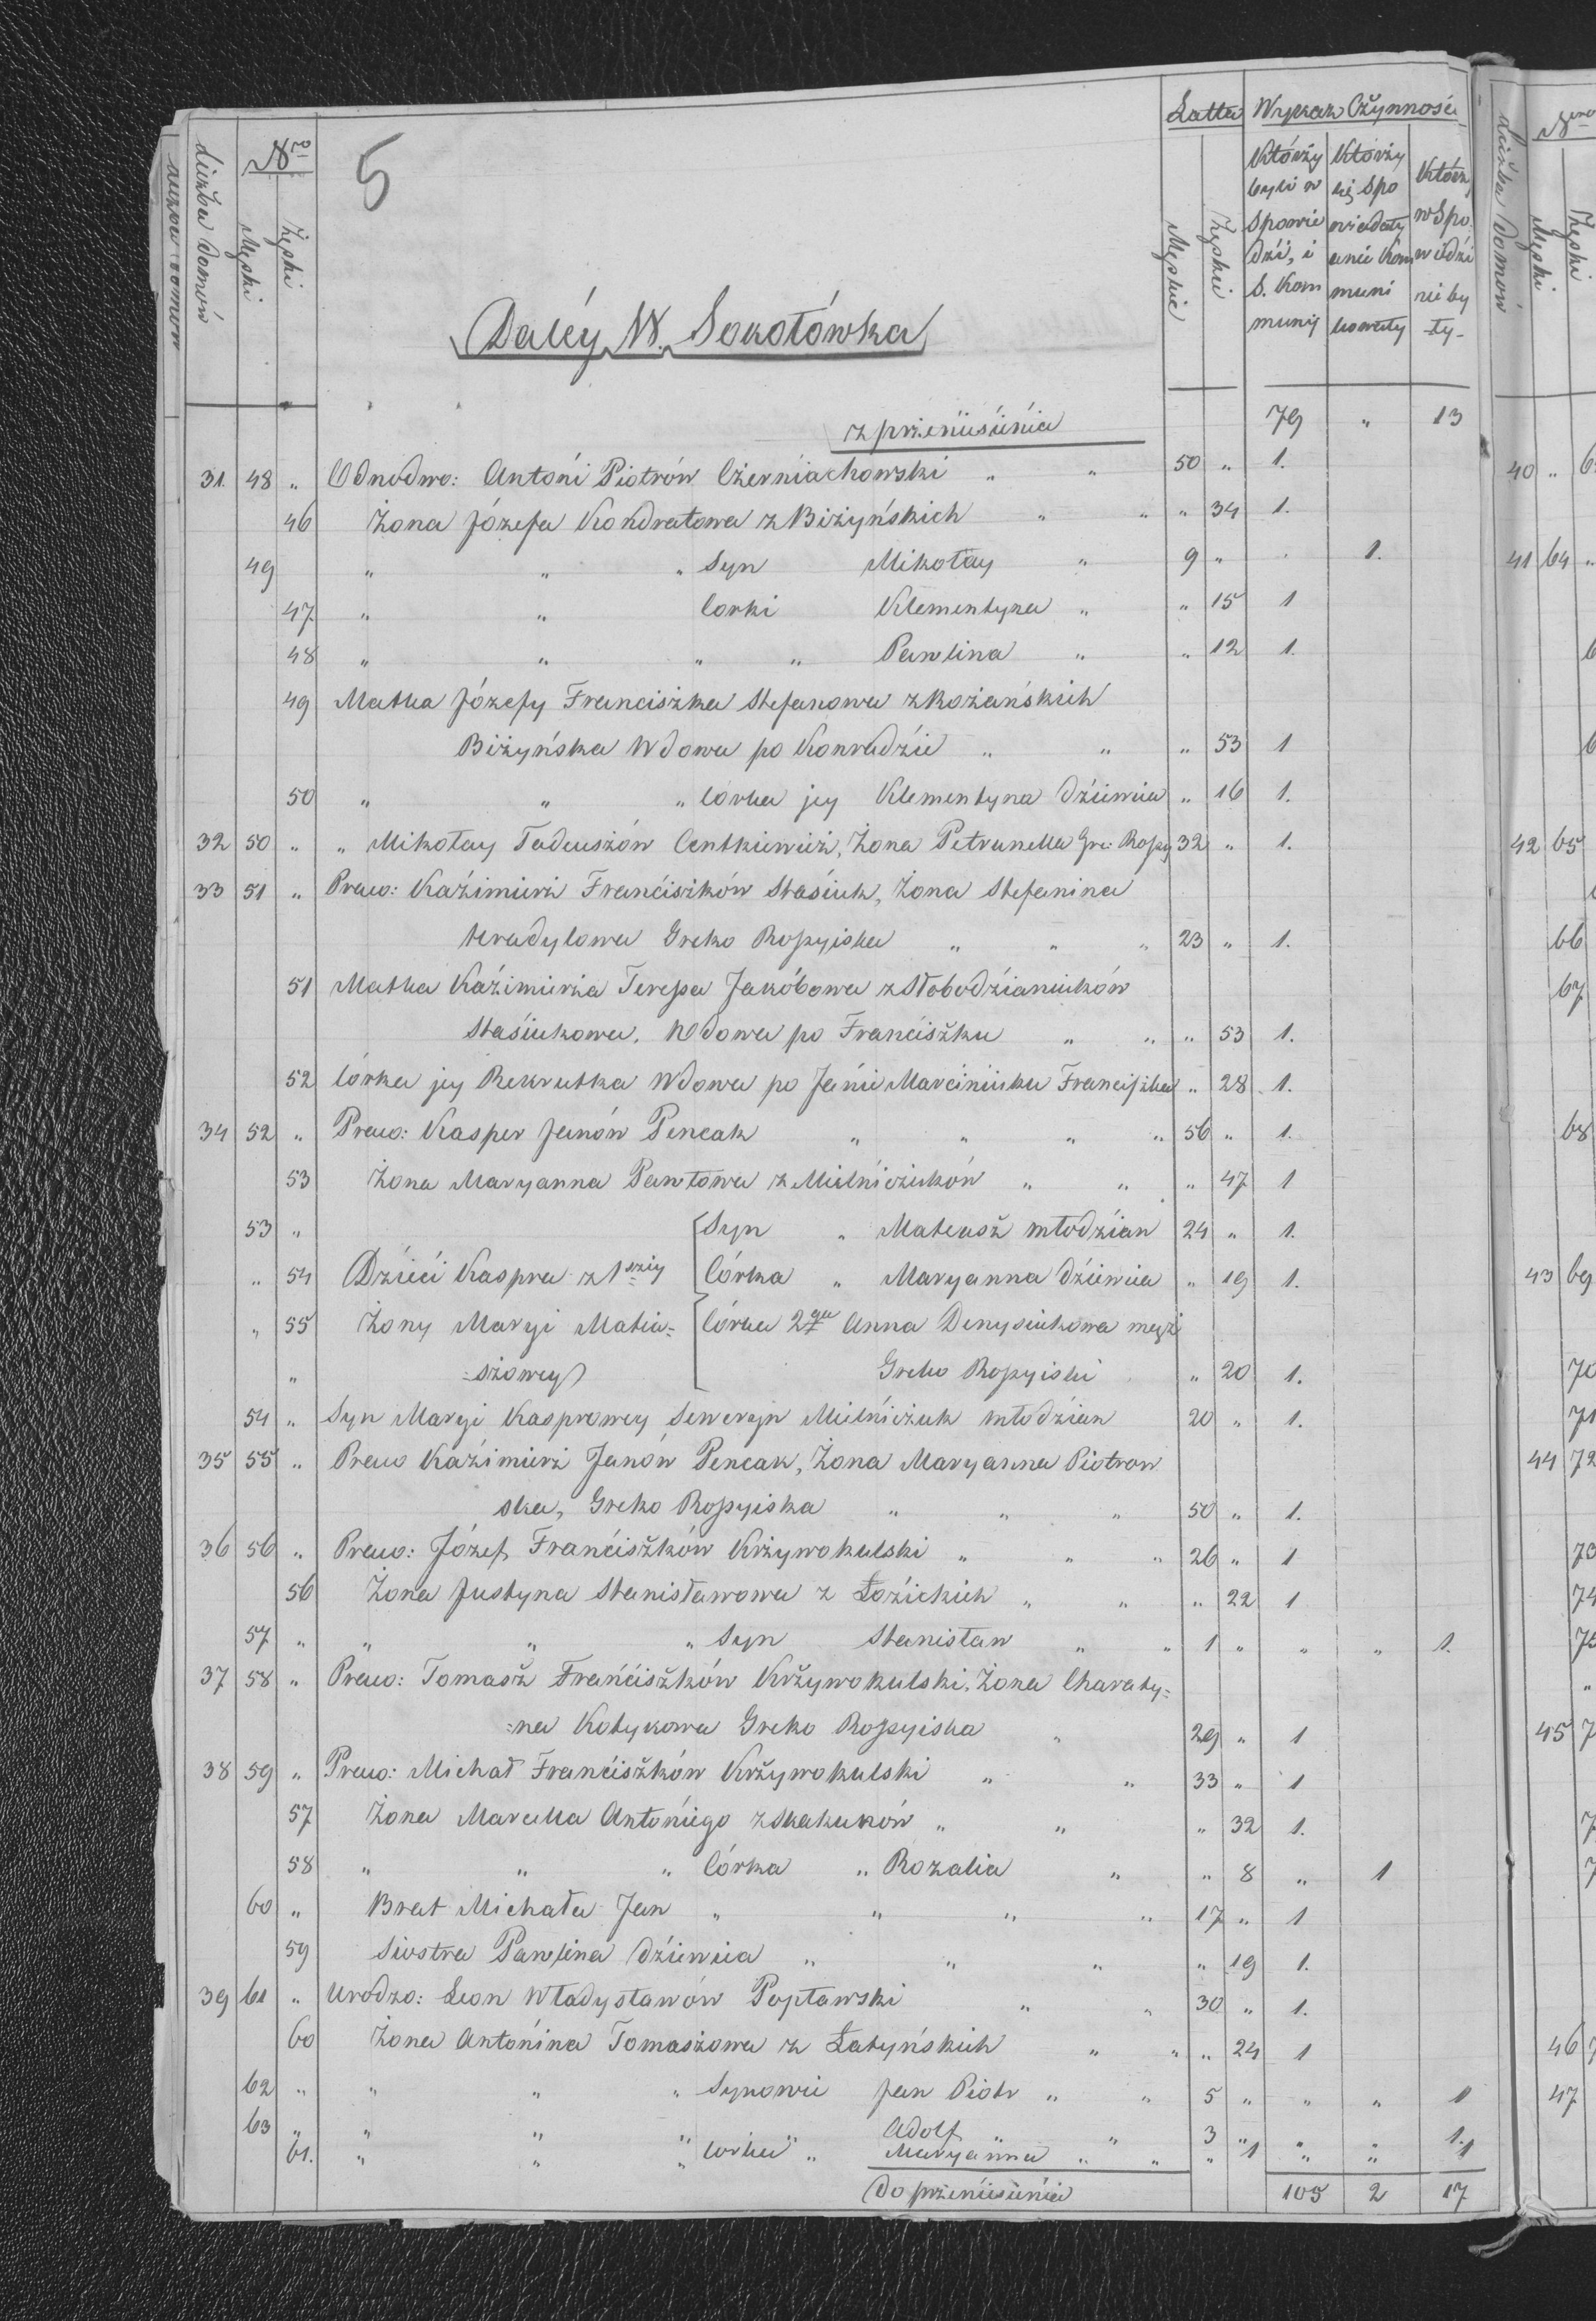 5
Liczba Domów
Nro
Męski
Żęski
Latta
Męskie
Żęskie
Wykaz Czynnośći
Którży byli w Spowie dźi, i S. Kom munij
Którży się Spo wiadały a nie Kom muni kowały
Którz w Spo wiedźi nie by ły-
Daléy W. Sokołówka
z przeniesienia 79 " 13
31. 48 " Odnodwo: Antoni Piotrów Czerniachowski " " 50 " 1.
46 Żona Józefa Kondratowa z Biżyńskich " " " 34 1.
49 " " " Syn Mikołay " 9 " . 1.
47 " " Corki Klementyna " " 15 1
48 " " " " Pawlina " " 12 1.
49 Matka Józefy Franciszka Stefanowa z Rożańskich
Biżyńska Wdowa po Konradźie " " " 53 1
50 " " " Corka jey Klementyna dźiewica " 16 1.
32 50 " " Mikołay Tadeuszów Centkiewicz, Żona Petrunella Gre: Roßy 32 " 1.
33 51 " Prawo: Kaźimierz Franćiszków Staśiuk, Żona Stefanina
Greko Roßyiska " " " 23 " 1.
51 Matka Kaźimierża Tereßa Jakóbowa z Słobodźianiuków
Staśiukowa, Wdowa po Franćiszku " " " 53 1.
52 Córka jey Rekrutka Wdowa po Janie Marćiniuku Francißka " 28 1.
34 52 " Prawo: Kasper Janów Pencak " " " " 56 " 1.
53 Żona Maryanna Pawłowa z Mielńiczuków " " " 47 1
53 " Syn " Mateusz młodźian 24 " 1.
" 54 Dźieći Kaspra z 1széy Córka " Maryanna dźiewica " 19 1.
" 55 Żony Maryi Matia= Córka 2ga Anna Denysiukowa męż
" =szowey Greko Roßyiski " 20 1.
54 " Syn Maryi Kasprowey Seweryn Mielńiczuk młodźian 20 " 1.
35 55 " Prawo Kaźimierz Janów Pencak, Żona Maryanna Piotrow
ska, Greko Roßyiska " " " 50 " 1.
36 56 " Prawo: Józef Franćiszków Krżywokulski " " " 26 " 1
56 Żona Justyna Stanisławowa z Łoźickich " " " 22 1
57 " " " " Syn Stanisław " " 1 " " " 1.
37 58 " Prawo: Tomasz Franćiszków Krżywokulski, Żona Charaty=
=na Kotykowa Greko Roßyiska " 29 " 1
38 59 " Prawo: Michał Franćiszków Krżywokulski " " 33 " 1
57 Żona Marcella Antoniego z Skakuków " " " 32 1.
58 " " " Córka " Rozalia " " 8 " 1
60 " Brat Michała Jan " " " " 17 " 1
59 Siostra Pawlina dźiewica " " " " 19 1.
39 61 " Urodzo: Leon Władysławów Popławski " " 30 " 1.
60 Żona Antońina Tomaszowa z Łatyńskich " " " 24 1
62 " " " " Synowie Jan Piotr " " 5 " " " 1
63 " " " Adolf " " 3 " " " 1.
61. " " " Corka " Maryanna " " " 1 " " 1
Do przeniesienia 105 2 17
Liczba Domów
Nro
Męski
Żęski
40 "
41 64 "
42 65
66
67
68
43 69
70
71
44 72
73
74
75
"
45
46
47